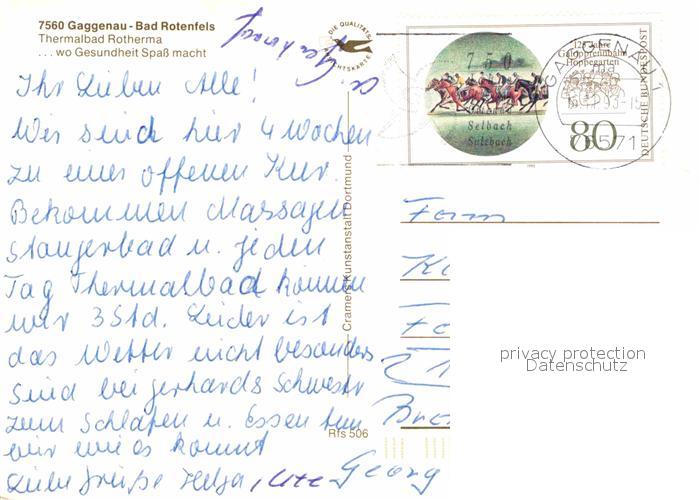 7560 Gaggenau - Bad Rotenfels
Thermalbad Rotherma
... wo Gesundheit Spaß macht
DIE QUALITÄTS
Ihr Lieben Alle!
Wir sind hier 4 Wochen
zu einer offenen Kur.
Bekommen Massagen
Stangerbad u. jeden
Tag Thermalbad können
wir 3 Std. Leider ist
das Wetter nicht besonders
Sind bei gerhards Schwester
zum Schlafen u. Essen tun
wir wie es kommt
Liebe Grüße Helga, Ute Georg
Cramers Kunstanstalt Dortmund
Rfs 506
750
Selbach
Sulzbach
125 Jahre
Galopprennbahn
Hoppegarten
80
DEUTSCHE BUNDESPOST
GAGGENAU 1
76571
Fam
privacy protection
Datenschutz